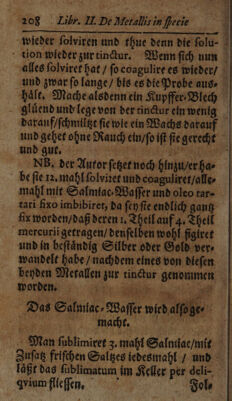 208 Libr. II. De Metallis in specie
wieder solviren und thue denn die solu-
tion wieder zur tinctur. Wenn sich nun
alles solviret hat / so coagulire es wieder/
und zwar so lange / biß es die Probe aus-
hält. Mache alsdenn ein Kupffer-Blech
glüend und lege von der tinctur ein wenig
darauf/schmiltzt sie wie ein Wachs darauf
und gehet ohne Rauch ein/so ist sie gerecht
und gut.
NB. der Autor setzet noch hinzu/er ha-
be sie 12. mahl solviret und coaguliret/alle-
mahl mit Salmiac-Wasser und oleo tar-
tari fixo imbibiret, da sey sie endlich gantz
fix worden/daß deren 1. Theil auf 4. Theil
mercurii getragen/denselben wohl figiret
und in beständig Silber oder Gold ver-
wandelt habe / nachdem eines von diesen
beyden Metallen zur tinctur genommen
worden.
Das Salmiac-Wasser wird also ge-
macht.
Man sublimiret 3. mahl Salmiac/mit
Zusatz frischen Saltzes iedesmahl / und
läßt das sublimatum im Keller per deli-
qvium fliessen.
Fol-